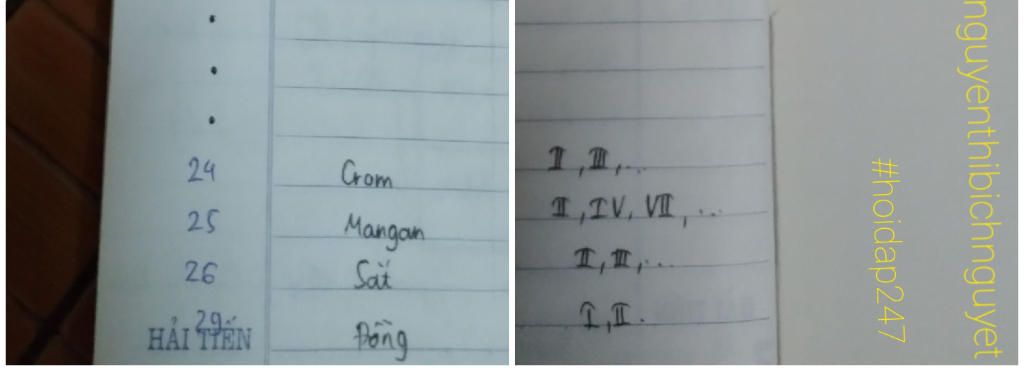 24 Crom
25 Mangan
26 Sắt
29 Đồng
HẢI TIẾN
II, III,..
II, IV, VII,...
II, III,...
I, II.
nguyenthibichnguyet
#hoidap247